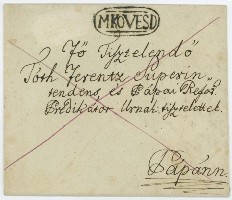 M.KÖVESD
Fő Tisztelendő
Tóth Ferentz Superin-
tendens és Pápai Refor.
Prédikátor Urnak tisztelettel
Pápánn.